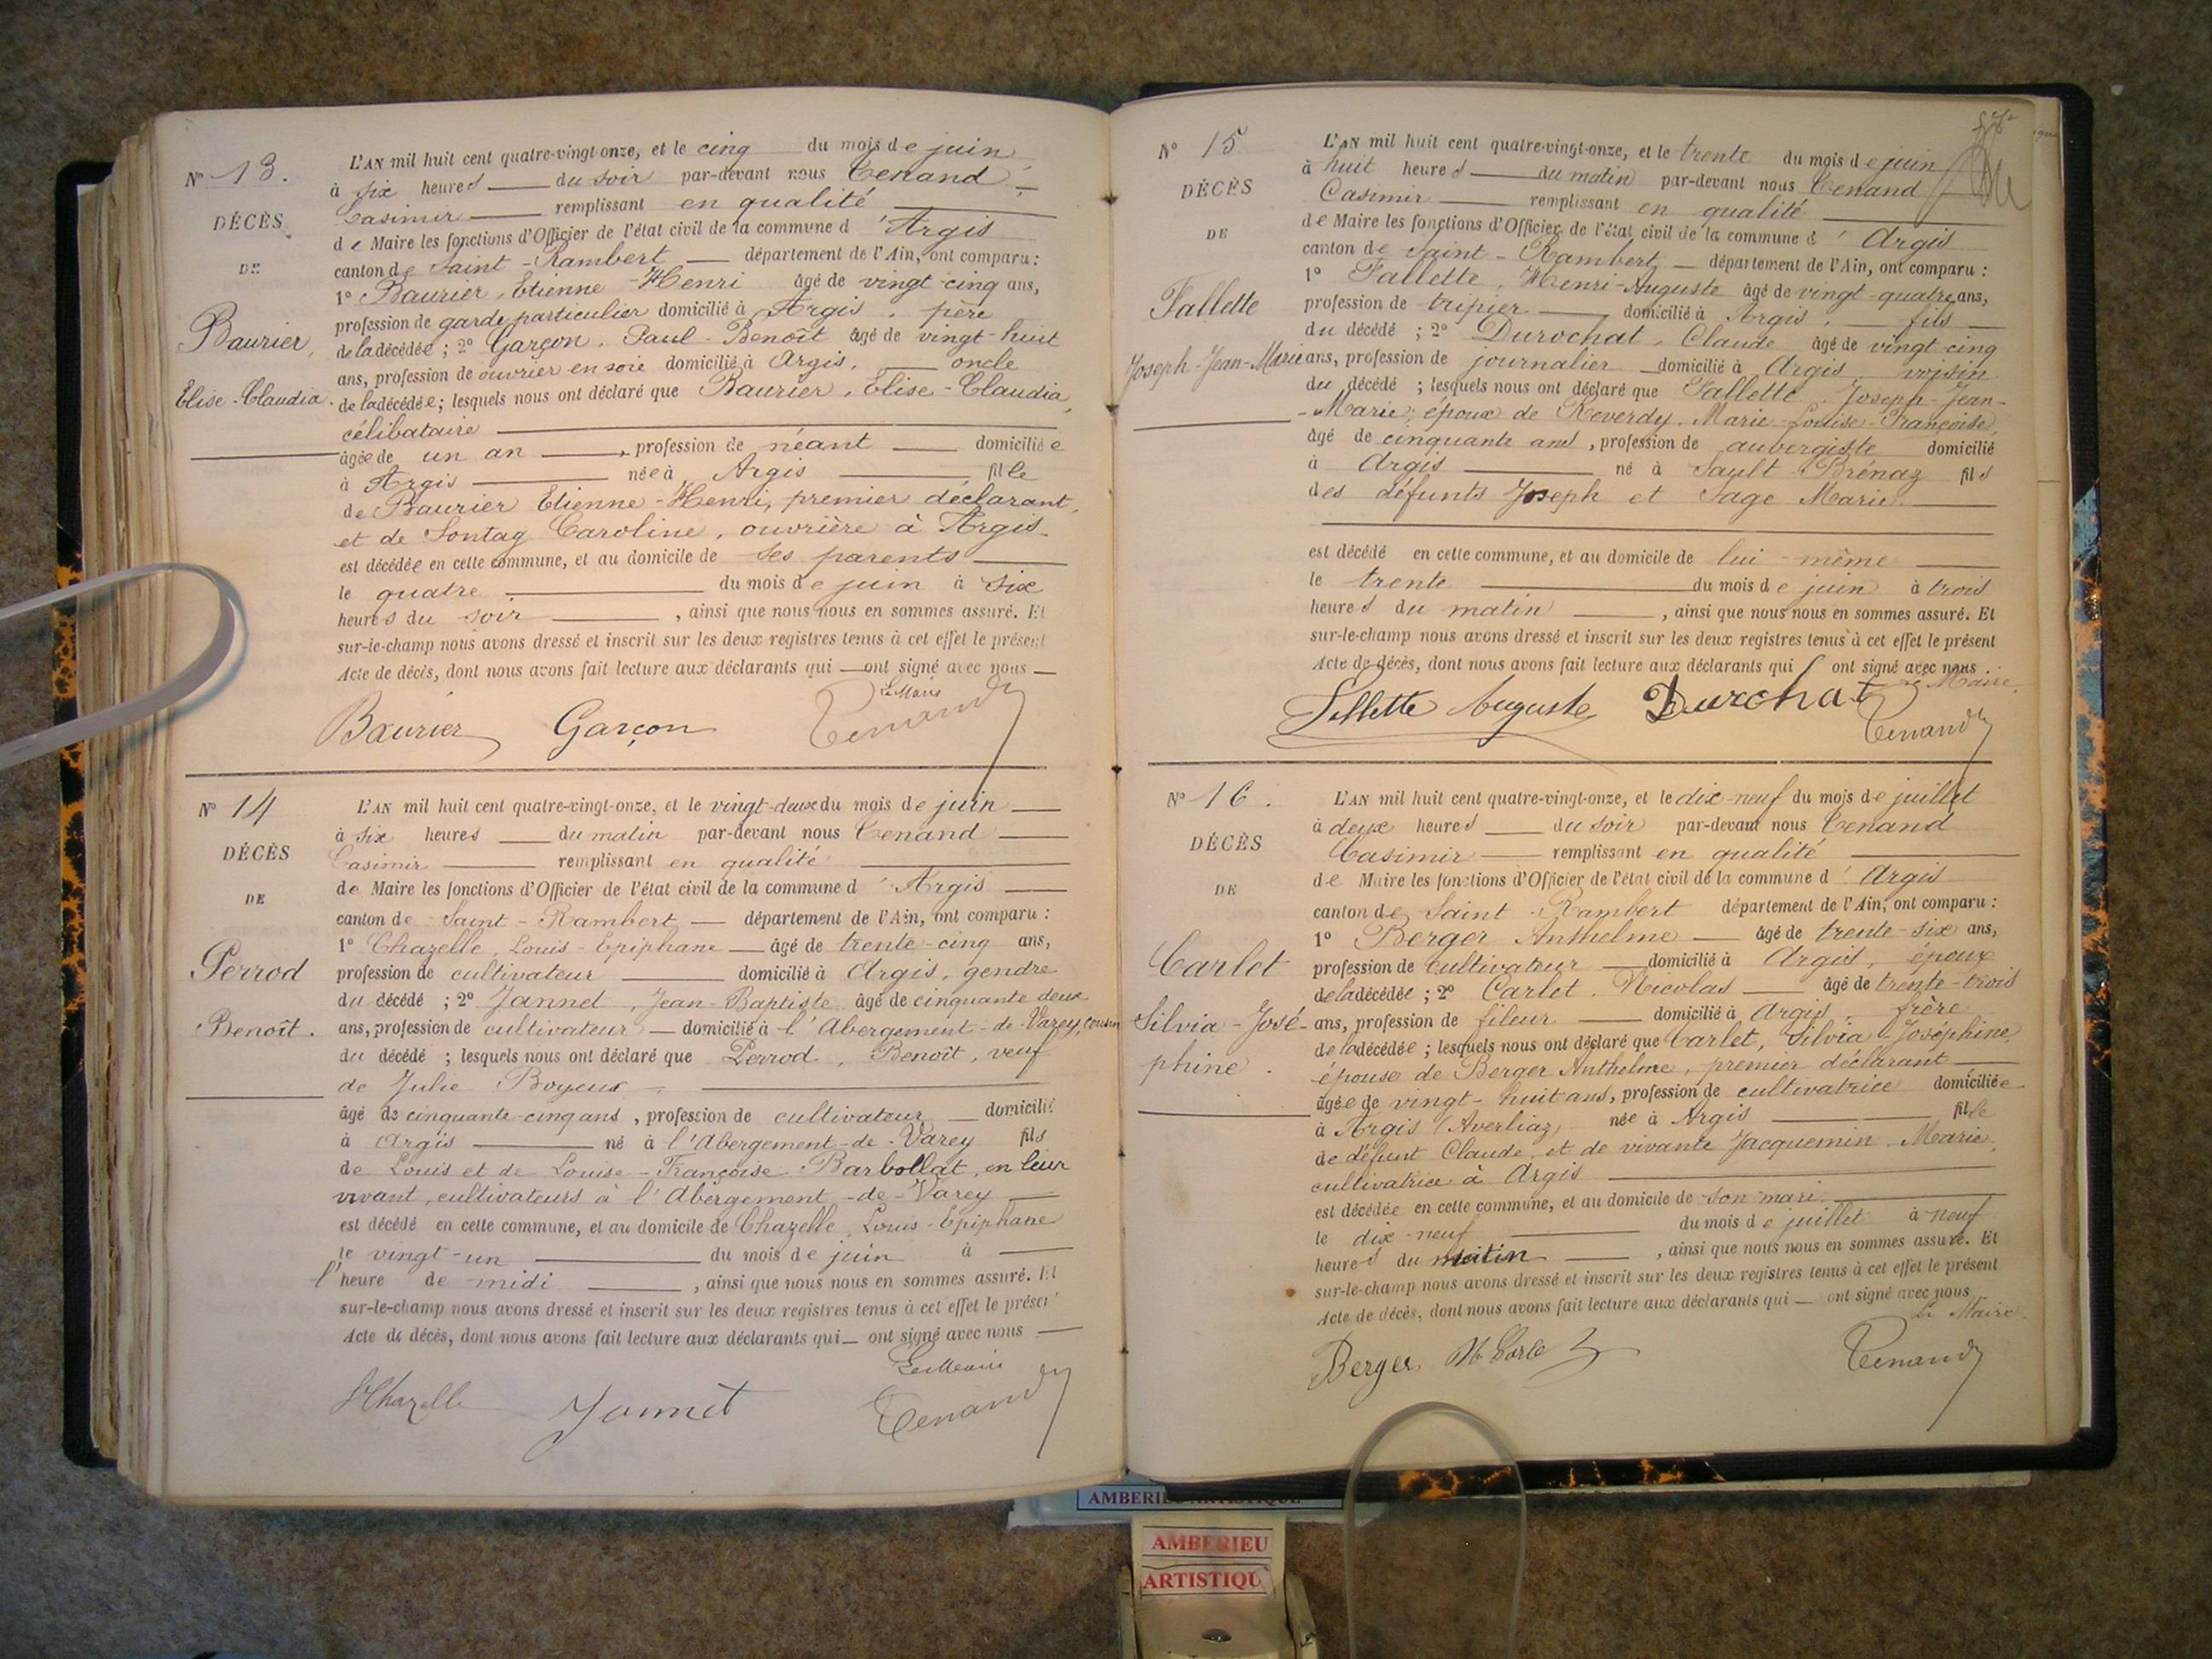 N° 13.
DÉCÈS
DE
Baurier,
Elise-Claudia.
L'AN mil huit cent quatre-vingt-onze, et le cinq du mois de juin
à six heures du soir par-devant nous Tenand
Casimir remplissant en qualité
de Maire les fonctions d'Officier de l'état civil de la commune d'Argis
canton de Saint-Rambert département de l'Ain, ont comparu :
1° Baurier, Etienne-Henri âgé de vingt-cinq ans,
profession de garde particulier domicilié à Argis, père
de la décédée ; 2° Garçon, Paul-Benoît âgé de vingt-huit
ans, profession de ouvrier en soie domicilié à Argis, oncle
de la décédée ; lesquels nous ont déclaré que Baurier, Elise-Claudia,
célibataire
âgée de un an, profession de néant domiciliée
à Argis née à Argis fille
de Baurier Etienne-Henri, premier déclarant,
et de Sontag Caroline, ouvrière à Argis
est décédée en cette commune, et au domicile de ses parents
le quatre du mois de juin à six
heures du soir, ainsi que nous nous en sommes assuré. Et
sur-le-champ nous avons dressé et inscrit sur les deux registres tenus à cet effet le présent
Acte de décès, dont nous avons fait lecture aux déclarants qui ont signé avec nous
Le Maire
Baurier Garçon Tenand
N° 14
DÉCÈS
DE
Perrod
Benoît.
L'AN mil huit cent quatre-vingt-onze, et le vingt-deux du mois de juin
à six heures du matin par-devant nous Tenand
Casimir remplissant en qualité
de Maire les fonctions d'Officier de l'état civil de la commune d'Argis
canton de Saint-Rambert département de l'Ain, ont comparu :
1° Chazelle, Louis-Epiphane âgé de trente-cinq ans,
profession de cultivateur domicilié à Argis, gendre
du décédé ; 2° Jannet, Jean-Baptiste âgé de cinquante deux
ans, profession de cultivateur domicilié à l'Abergement-de-Varey, cousin
du décédé ; lesquels nous ont déclaré que Perrod, Benoît, veuf
de Julie Boyeux
âgé de cinquante-cinq ans, profession de cultivateur domicilié
à Argis né à l'Abergement-de-Varey fils
de Louis et de Louise-Françoise Barbollat, en leur
vivant, cultivateurs à l'Abergement-de-Varey
est décédé en cette commune, et au domicile de Chazelle, Louis-Epiphane
le vingt-un du mois de juin à
l'heure de midi, ainsi que nous nous en sommes assuré. Et
sur-le-champ nous avons dressé et inscrit sur les deux registres tenus à cet effet le présent
Acte de décès, dont nous avons fait lecture aux déclarants qui ont signé avec nous
Le Maire
Chazelle Jannet Tenand
N° 15
DÉCÈS
DE
Fallette
Joseph-Jean-Marie
L'AN mil huit cent quatre-vingt-onze, et le trente du mois de juin
à huit heures du matin par-devant nous Tenand
Casimir remplissant en qualité
de Maire les fonctions d'Officier de l'état civil de la commune d'Argis
canton de Saint-Rambert département de l'Ain, ont comparu :
1° Fallette, Henri-Auguste âgé de vingt-quatre ans,
profession de tripier domicilié à Argis, fils
du décédé ; 2° Durochat, Claude âgé de vingt-cinq
ans, profession de journalier domicilié à Argis, voisin
du décédé ; lesquels nous ont déclaré que Fallette, Joseph-Jean-
-Marie, époux de Reverdy, Marie-Louise-Françoise,
âgé de cinquante ans, profession de aubergiste domicilié
à Argis né à Sault-Brénaz fils
des défunts Joseph et Sage Marie.
est décédé en cette commune, et au domicile de lui-même
le trente du mois de juin à trois
heures du matin, ainsi que nous nous en sommes assuré. Et
sur-le-champ nous avons dressé et inscrit sur les deux registres tenus à cet effet le présent
Acte de décès, dont nous avons fait lecture aux déclarants qui ont signé avec nous.
Le Maire.
Fellette Auguste Durchat Tenand
N° 16.
DÉCÈS
DE
Carlet
Silvia-José-
phine.
L'AN mil huit cent quatre-vingt-onze, et le dix-neuf du mois de juillet
à deux heures du soir par-devant nous Tenand
Casimir remplissant en qualité
de Maire les fonctions d'Officier de l'état civil de la commune d'Argis
canton de Saint-Rambert département de l'Ain, ont comparu :
1° Berger Anthelme âgé de trente-six ans,
profession de cultivateur domicilié à Argis, époux
de la décédée ; 2° Carlet, Nicolas âgé de trente-trois
ans, profession de fileur domicilié à Argis, frère
de la décédée ; lesquels nous ont déclaré que Carlet, Silvia Joséphine,
épouse de Berger Anthelme, premier déclarant
âgée de vingt-huit ans, profession de cultivatrice domiciliée
à Argis (Averliaz) née à Argis fille
de défunt Claude, et de vivante Jacquemin Marie,
cultivatrice à Argis
est décédée en cette commune, et au domicile de son mari
le dix-neuf du mois de juillet à neuf
heures du matin, ainsi que nous nous en sommes assuré. Et
sur-le-champ nous avons dressé et inscrit sur les deux registres tenus à cet effet le présent
Acte de décès, dont nous avons fait lecture aux déclarants qui ont signé avec nous
Le Maire.
Berger Tenand
AMBERIEU ARTISTIQUE
AMBERIEU
ARTISTIQU